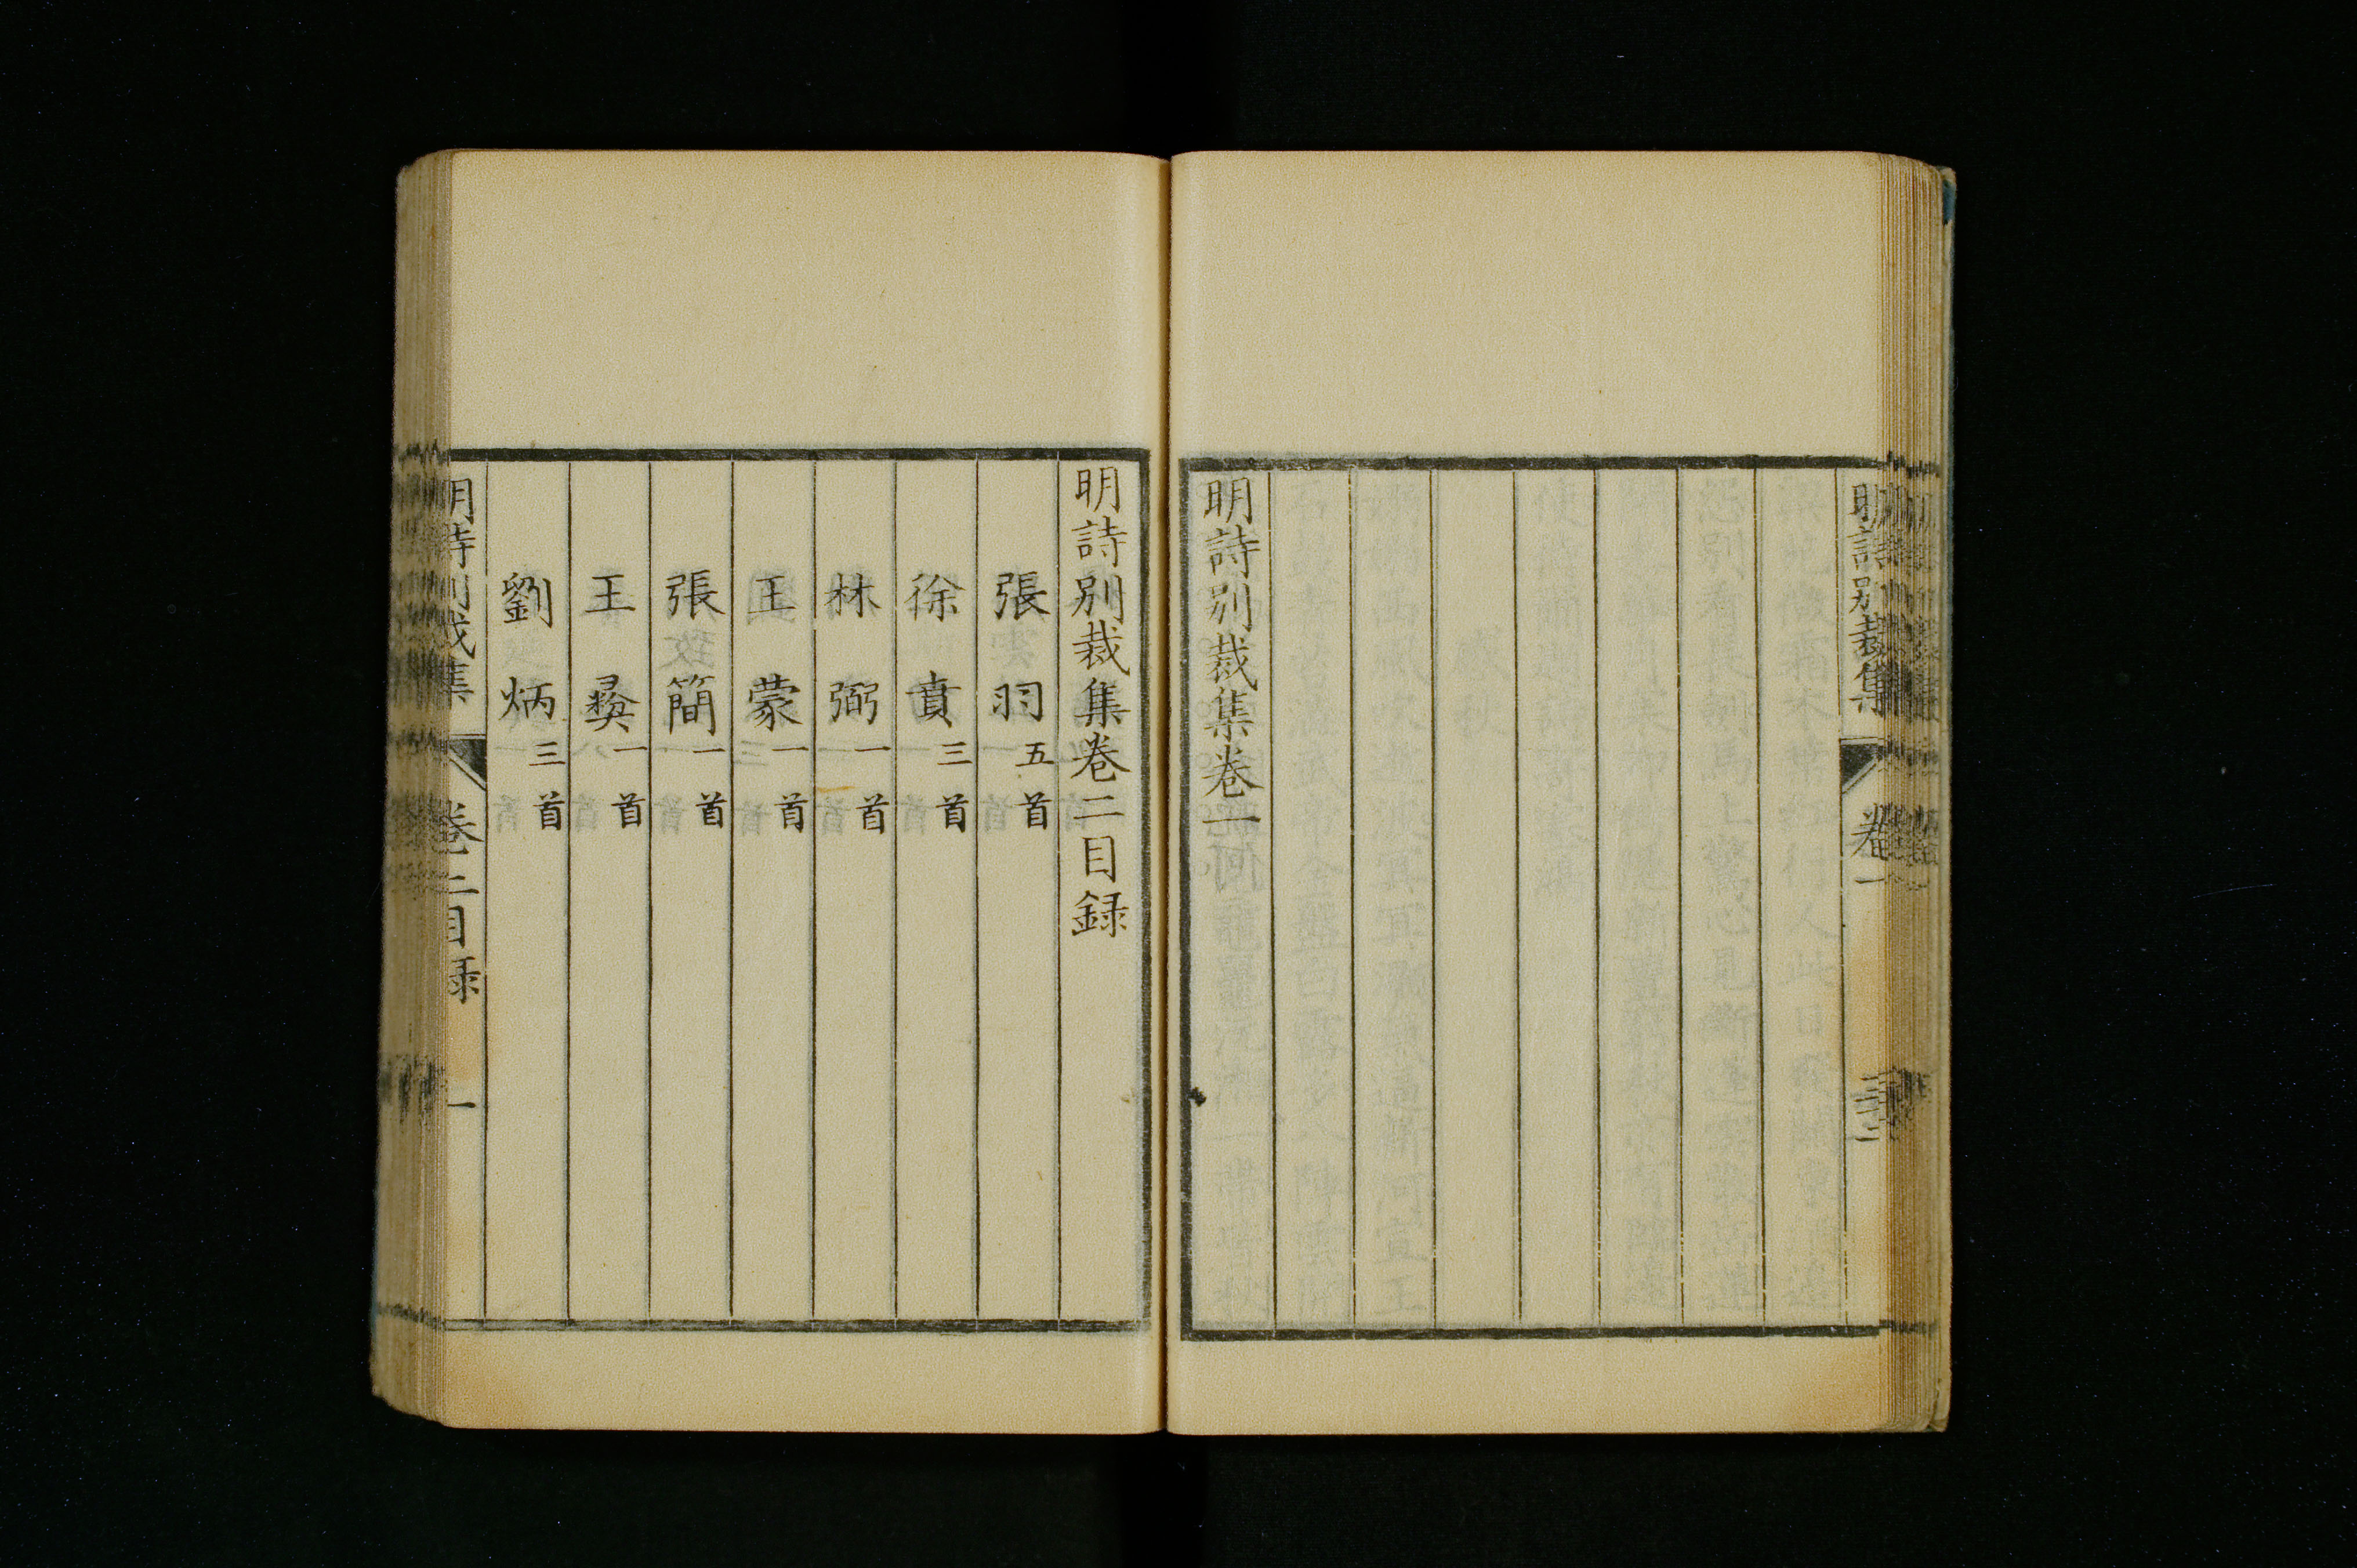 明詩別裁集 卷一
明詩別裁集卷一
明詩別裁集卷二目録
張羽 五首
徐賁 三首
林弼 一首
王蒙 一首
張簡 一首
王彝 一首
劉炳 三首
明詩別裁集 卷二目録 一